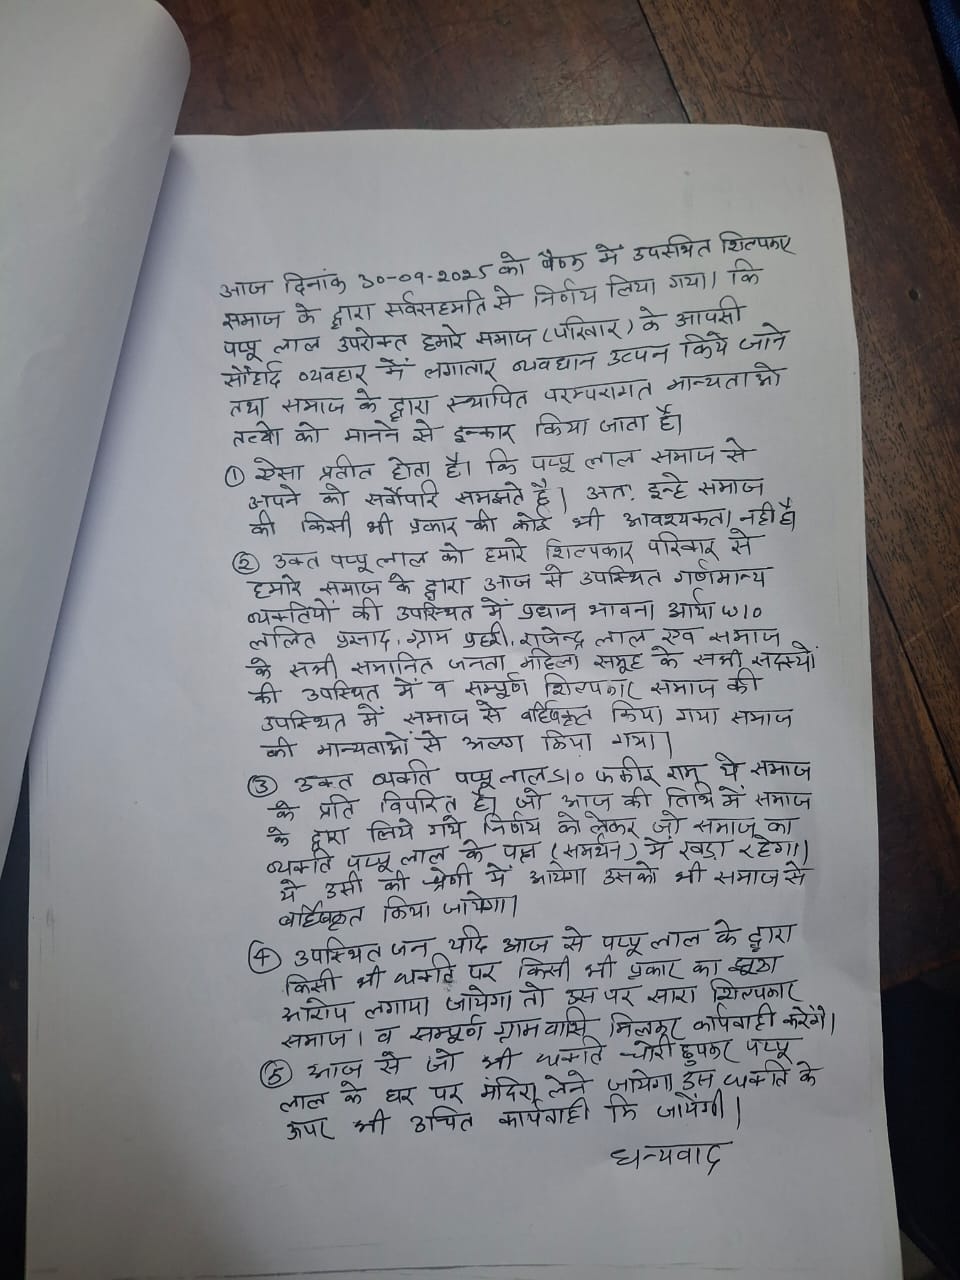 आज दिनांक 30-09-2025 को बैठक में उपस्थित शिल्पकार
समाज के द्वारा सर्वसहमति से निर्णय लिया गया। कि
पप्पू लाल उपरोक्त हमारे समाज (परिवार) के आपसी
सौहार्द व्यवहार में लगातार व्यवधान उत्पन किये जाने
तथा समाज के द्वारा स्थापित परम्परागत मान्यताओ
को मानने से इन्कार किया जाता है।
① ऐसा प्रतीत होता है। कि पप्पू लाल समाज से
अपने को सर्वोपरि समझते है। अत. इन्हे समाज
की किसी भी प्रकार की कोई भी आवश्यकता नही है।
② उक्त पप्पू लाल को हमारे शिल्पकार परिवार से
हमारे समाज के द्वारा आज से उपस्थित गर्णमान्य
व्यक्तियों की उपस्थित में प्रधान भावना आर्या W/O
ललित प्रसाद, ग्राम प्रहरी, राजेन्द्र लाल एव समाज
के सभी समानित जनता महिला समूह के सभी सदस्यों
की उपस्थित में व सम्पूर्ण शिल्पकार समाज की
उपस्थित में समाज से बर्हिषकृत किया गया समाज
की मान्यताओं से अलग किया गया।
③ उक्त व्यक्ति पप्पू लाल S/O फकीर राम ये समाज
के प्रति विपरित है। जो आज की तिथि में समाज
के द्वारा लिये गये निर्णय को लेकर जो समाज का
व्यक्ति पप्पू लाल के पक्ष (समर्थन) में खड़ा रहेगा।
ये उसी की श्रेणी में आयेगा उसको भी समाज से
बर्हिषकृत किया जायेगा।
④ उपस्थित जन यदि आज से पप्पू लाल के द्वारा
किसी भी व्यक्ति पर किसी भी प्रकार का झूठा
आरोप लगाया जायेगा तो उस पर सारा शिल्पकार
समाज। व सम्पूर्ण ग्राम वासि मिलकर कार्यवाही करेंगे।
⑤ आज से जो भी व्यक्ति चोरी छुपकर पप्पू
लाल के घर पर मदिरा लेने जायेगा उस व्यक्ति के
ऊपर भी उचित कार्यवाही कि जायेंगी।
धन्यवाद